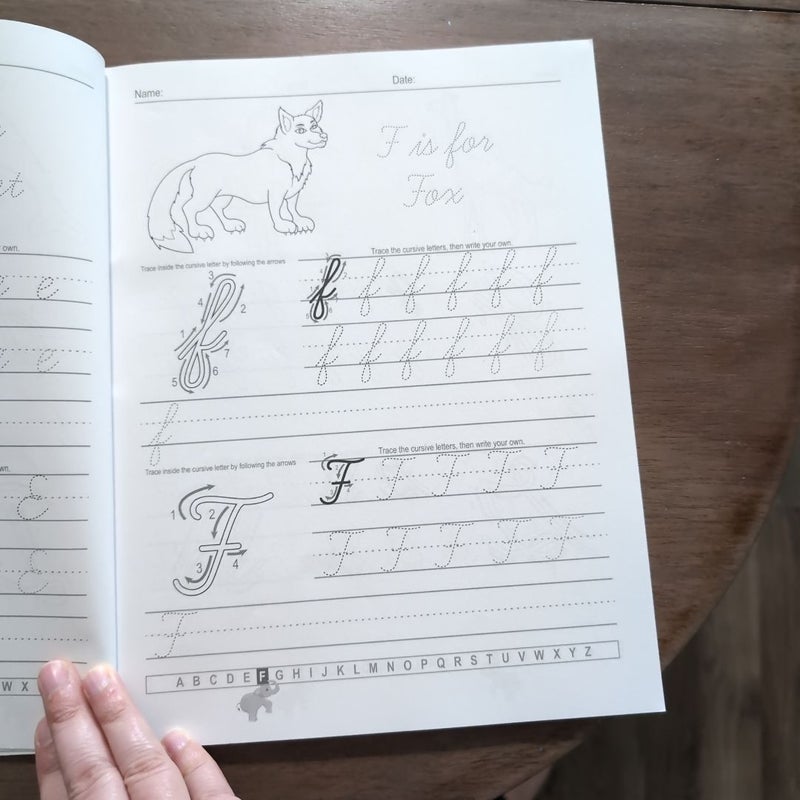 Name: Date:
F is for
Fox
Trace inside the cursive letter by following the arrows
Trace the cursive letters, then write your own.
3
4 2
1
7
5 6
f f f f f f
f f f f f f
f
Trace inside the cursive letter by following the arrows
Trace the cursive letters, then write your own.
1 2
3 4
F F F F F
F F F F F
F
A B C D E F G H I J K L M N O P Q R S T U V W X Y Z
et
own.
e e
e e
wn.
E
E
W X